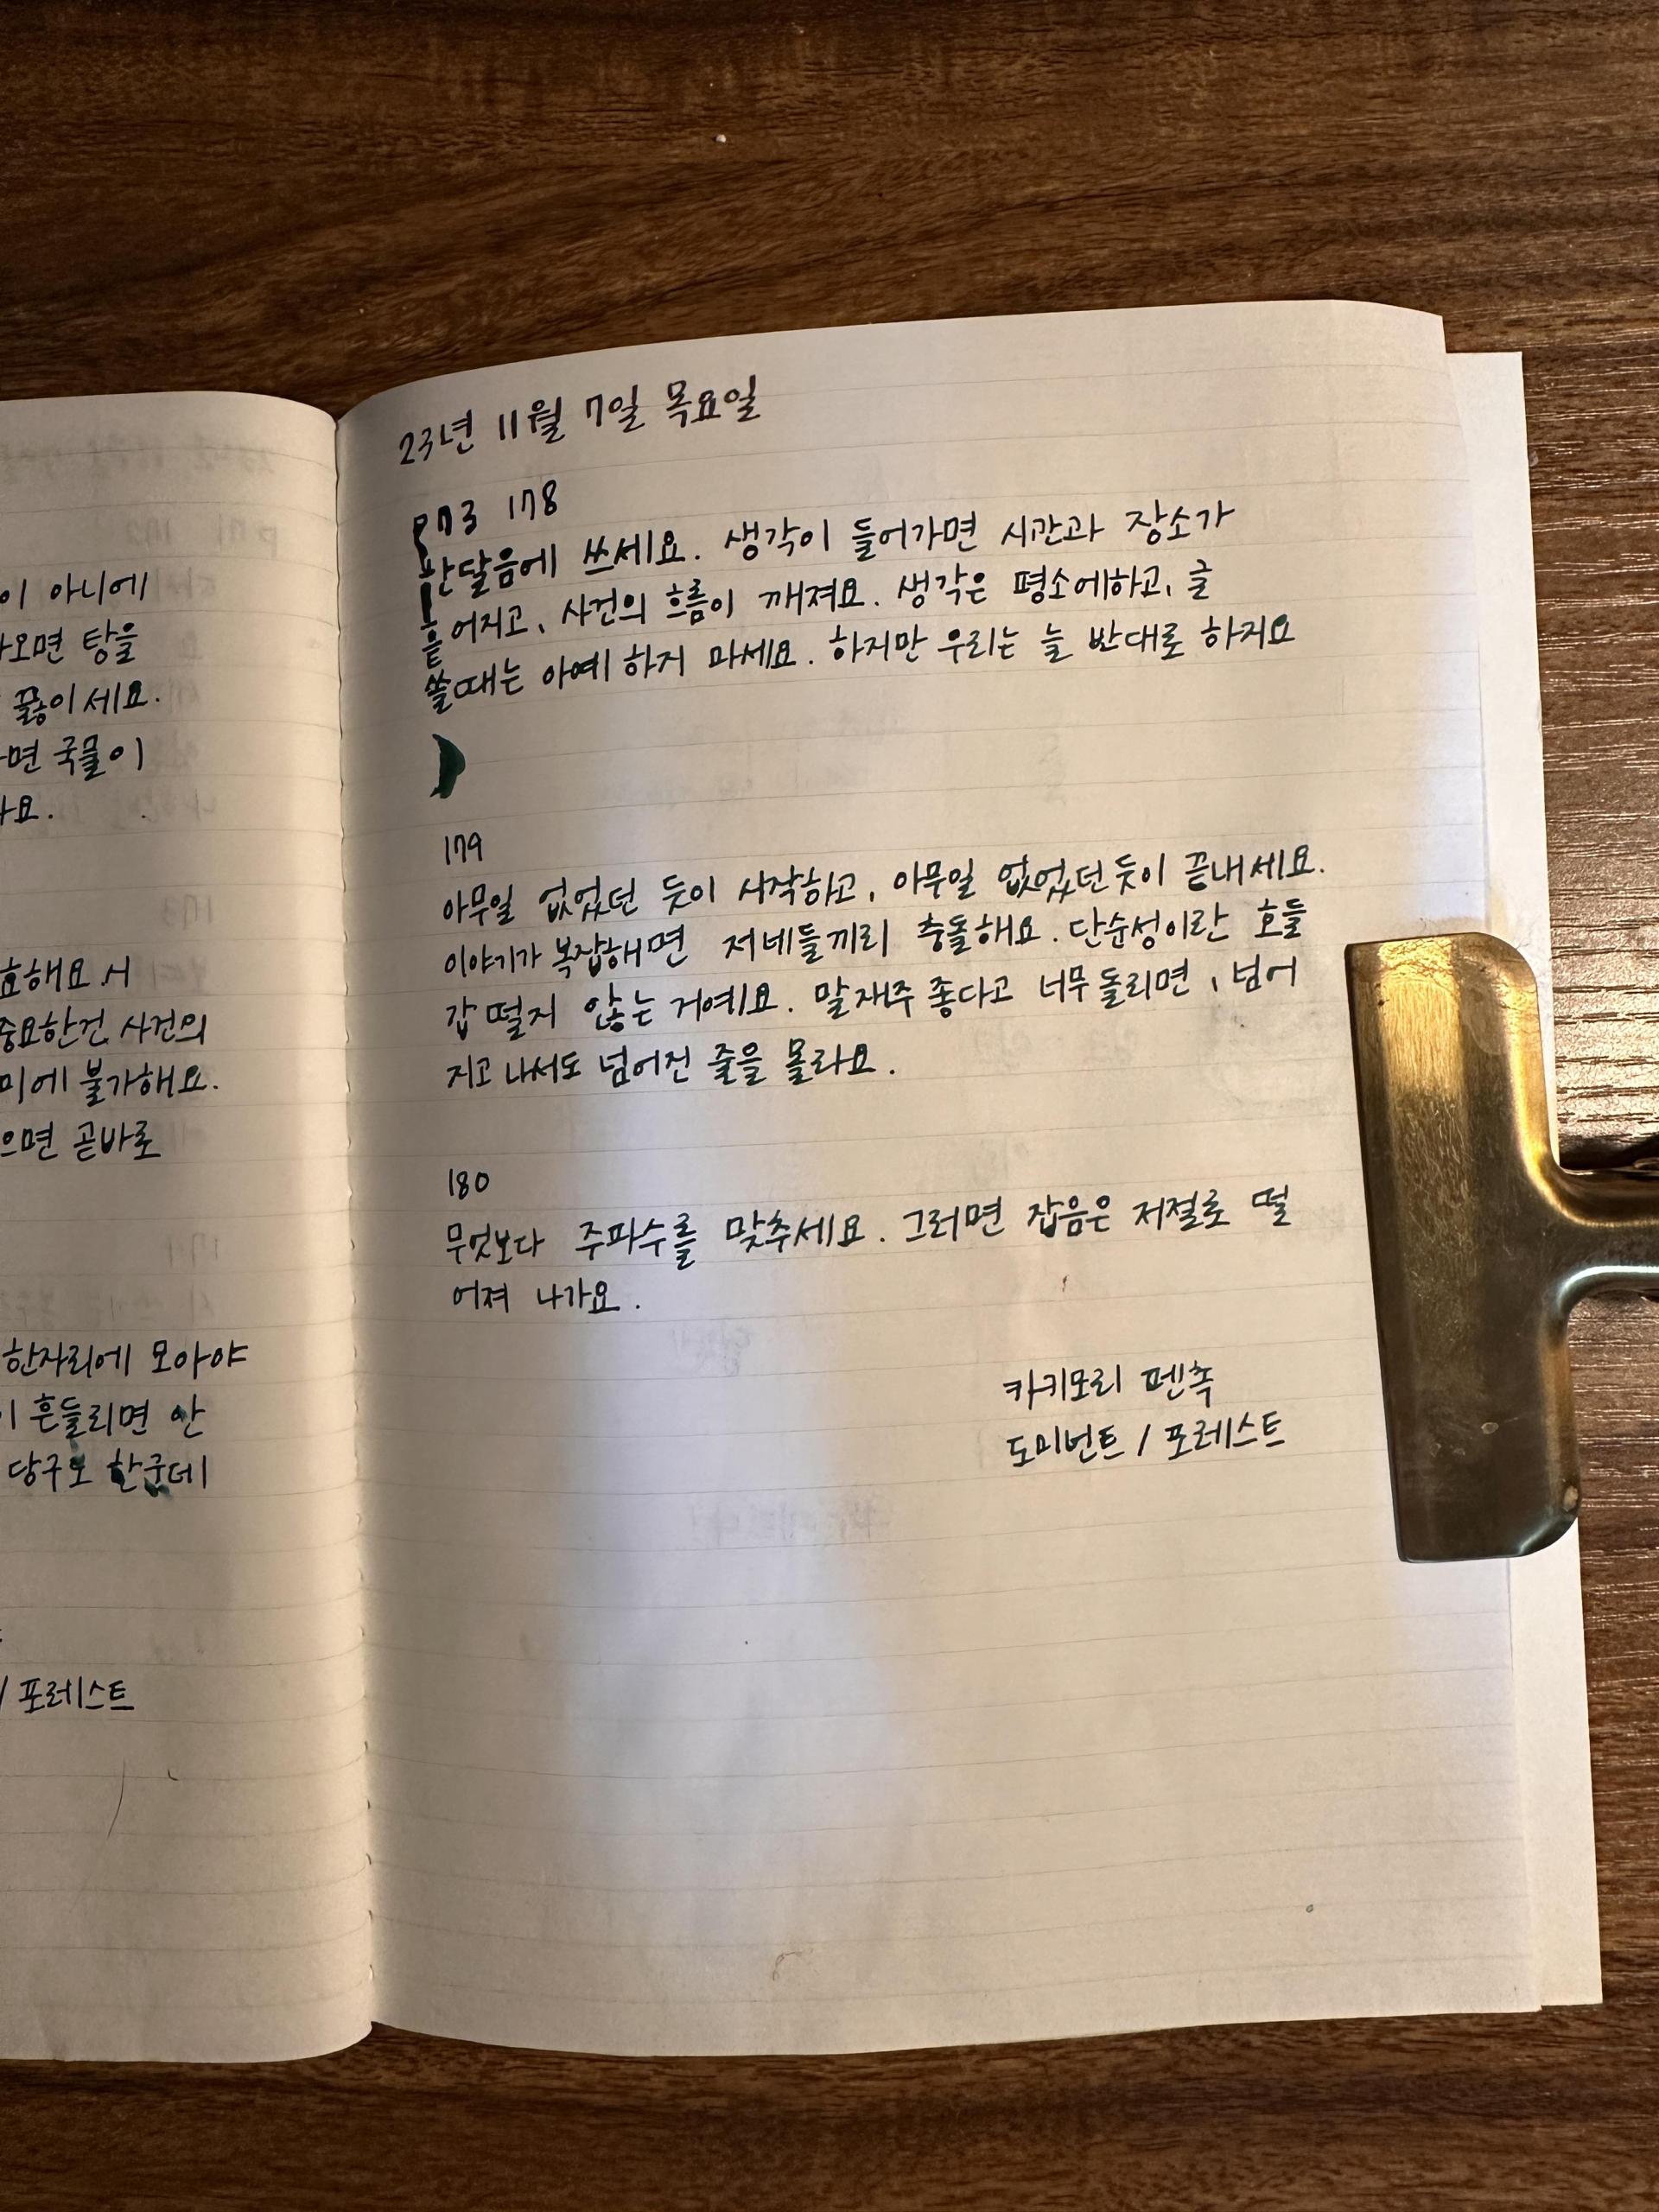 이 아니에
나오면 탕을
끓이세요.
면 국물이
요.
효해요. 시
중요한건 사건의
미에 불가해요.
으면 곧바로
한자리에 모아야
이 흔들리면 안
당구도 한군데
/ 포레스트
23년 11월 7일 목요일
P73 178
한달음에 쓰세요. 생각이 들어가면 시간과 장소가
흩어지고, 사건의 흐름이 깨져요. 생각은 평소에하고, 글
쓸때는 아예 하지 마세요. 하지만 우리는 늘 반대로 하지요
179
아무일 없었던 듯이 시작하고, 아무일 없었던듯이 끝내세요.
이야기가 복잡해면 저네들끼리 충돌해요. 단순성이란 호들
갑 떨지 않는 거예요. 말재주 좋다고 너무 돌리면, 넘어
지고 나서도 넘어진 줄을 몰라요.
180
무엇보다 주파수를 맞추세요. 그러면 잡음은 저절로 떨
어져 나가요.
카키모리 펜촉
도미넌트 / 포레스트